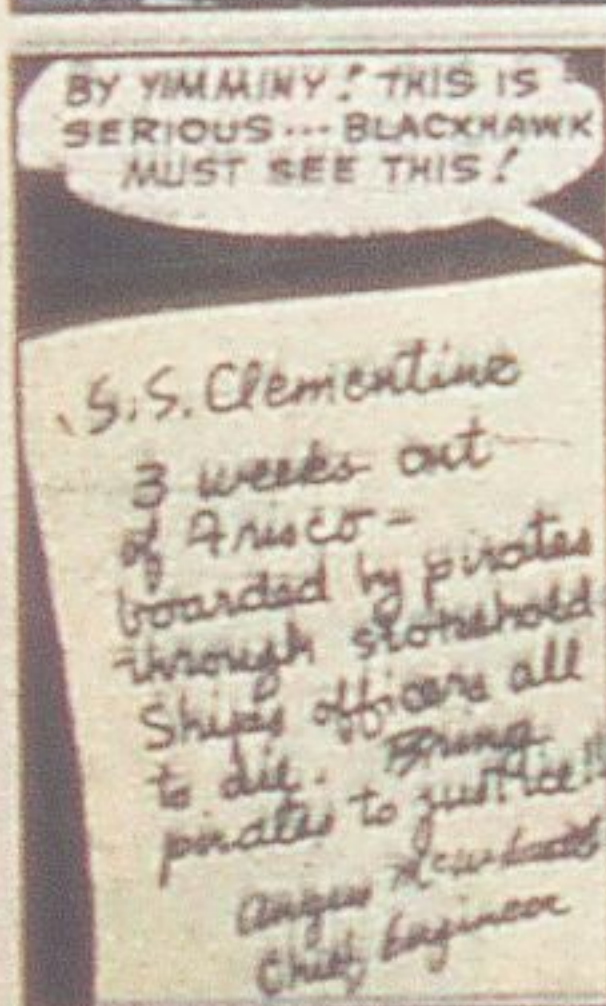 BY YIMMINY! THIS IS
SERIOUS... BLACKHAWK
MUST SEE THIS!
S.S. Clementine
3 weeks out
of Frisco-
boarded by pirates
through storehold
Ships officers all
to die. Bring
pirates to justice!!
Angus
Chief Engineer